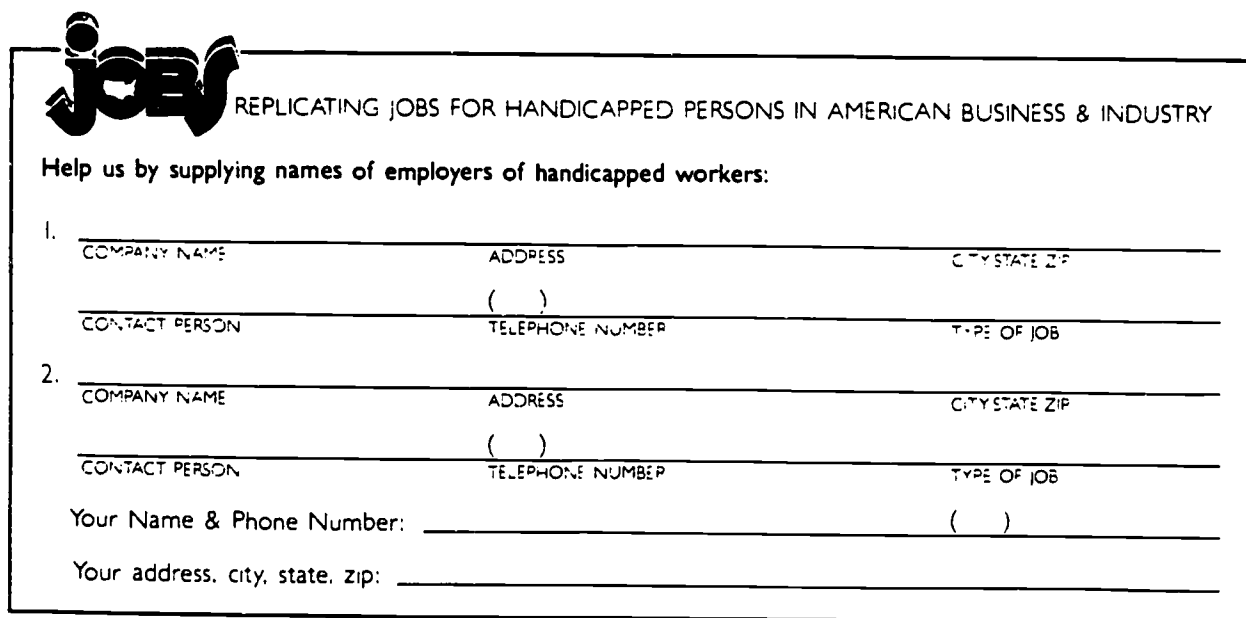 jOBS
REPLICATING JOBS FOR HANDICAPPED PERSONS IN AMERICAN BUSINESS & INDUSTRY
Help us by supplying names of employers of handicapped workers:
1.
COMPANY NAME ADDRESS CITY STATE ZIP
( )
CONTACT PERSON TELEPHONE NUMBER TYPE OF JOB
2.
COMPANY NAME ADDRESS CITY STATE ZIP
( )
CONTACT PERSON TELEPHONE NUMBER TYPE OF JOB
Your Name & Phone Number: ( )
Your address, city, state, zip: